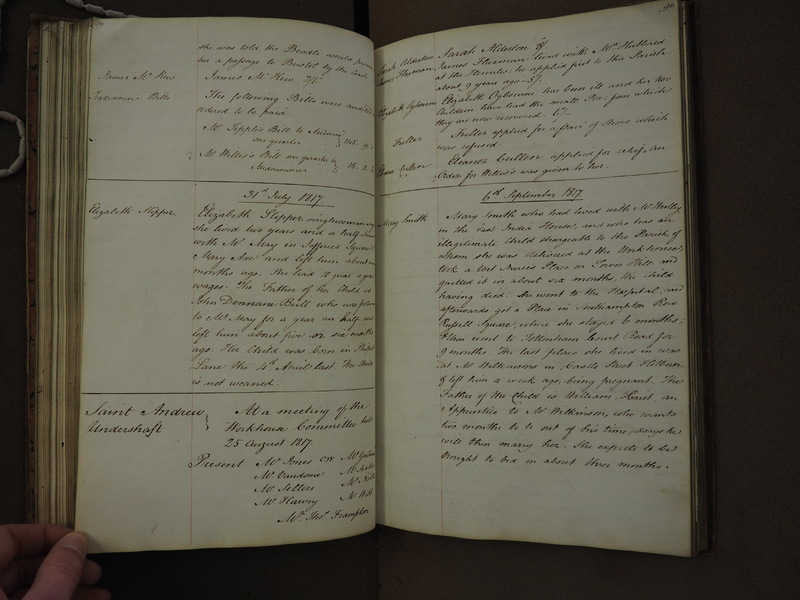 89
she was told the Beadle would procure
her a passage to Bristol by the
James Mc Kew
James Mc Kew 7/6
Tradesmens Bills
The following Bills were audited
ordered to be paid
Mr Tipple's Bill to Midsumr
quarter
Mr Willess's Bill on quarter to
Midsummer
31st July 1817
Elizabeth Slepper
Elizabeth Slepper singlewoman says
she lived two years and a half
with Mr May in Jefferies Square
Mary Axe and left him about
months ago. She had 10 Gas a year
wages. The Father of her Child is
John Dennam Bull who was
to Mr May for a year an half and
left him about five or six months
ago. Her Child was born in
Lane the 4th April last. The Child
is not weaned.
Saint Andrew
Undershaft
At a meeting of the
Workhouse Committee held
25 August 1817.
Present Mr Jones
Mr Vandome
Mr Sellers
Mr Harvey
Mr Thos Frampton
90
Sarah Alderton
Sarah Alderton 5/
James Flaxman
James Flaxman lived with Mr Hubbard
at the Hercules, he applied first to this Parish
about 9 years ago - 5/.
Elizabeth Ogbourn
Elizabeth Ogbourn has been ill and her two
Children have had the small Pox, from which
they are now recovered.
Fuller
Fuller applied for a pair of Shoes which
was refused.
Eleanor Cullen
Eleanor Cullen applied for relief. An
Order for was given to her.
6th September 1817
Mary Smith
Mary Smith who had lived with Mr
in the East India House, and who has an
illegitimate Child chargeable to the Parish, of
whom she was delivered at the Workhouse,
took a Wet Nurses Place on Tower Hill, and
quitted it in about six months, the Child
having died. She went to the Hospital, and
afterwards got a Place in Southampton Row
Russell Square, where she stayed 6 months;
then went to Tottenham Court Road for
9 months. The last place she lived in was
at Mr Wilkinsons in Castle Street Holborn
& left him a week ago, being pregnant. The
Father of the Child is William Hunt an
Apprentice to Mr Wilkinson, who wants
two months to be out of his time, & says he
will then marry her. She expects to be
brought to bed in about three months.